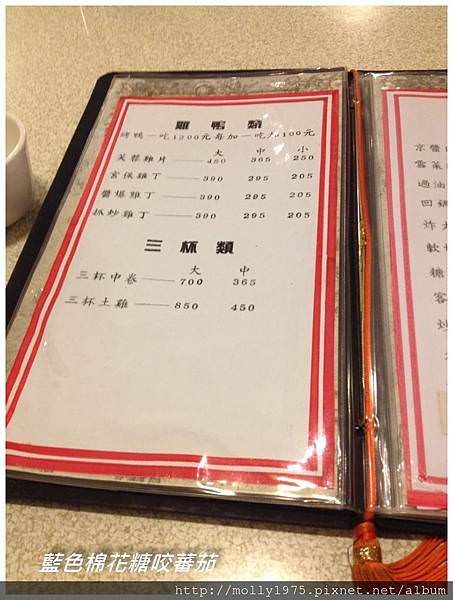 雞鴨類
烤鴨一吃1200元每加一吃加100元
大 中 小
芙蓉雞片—450 365 250
宮保雞丁—390 295 205
醬爆雞丁—390 295 205
抓炒雞丁—390 295 205
三杯類
大 中
三杯中卷—700 365
三杯土雞—850 450
京醬
過油
回鍋
炸
軟
糖
客
炒
藍色棉花糖咬蕃茄
http://molly1975.pixnet.net/album